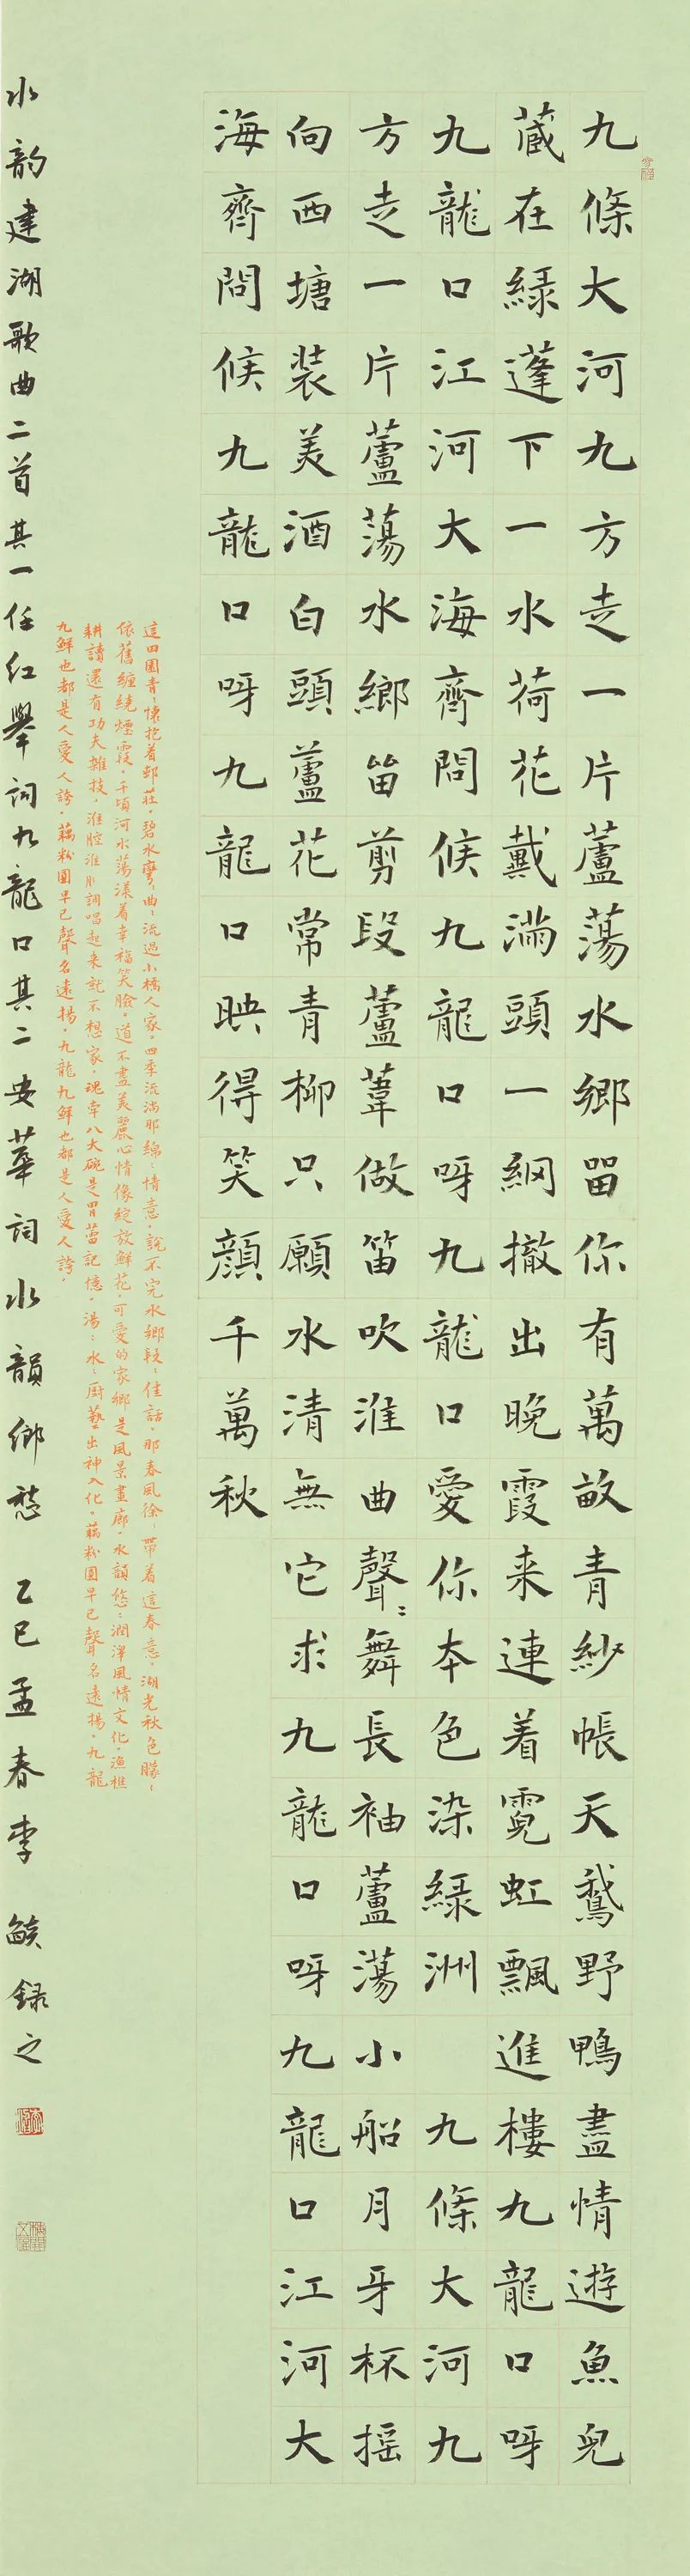 九條大河九方走一片蘆蕩水鄉留你有萬畝青紗帳天鵝野鴨盡情遊魚兒
蔵在綠蓬下一水荷花戴滿頭一網撤出晚霞来連着霓虹飄進樓九龍口呀
九龍口江河大海齊問候九龍口呀九龍口愛你本色染綠洲 九條大河九
方走一片蘆蕩水鄉笛剪段蘆葦做笛吹淮曲聲〻舞長袖蘆蕩小船月牙杯摇
向西塘装美酒白頭蘆花常青柳只願水清無它求九龍口呀九龍口江河大
海齊問候九龍口呀九龍口映得笑顔千萬秋
這田園青〻懷抱着邨莊，碧水彎〻曲〻流過小橋人家，四季流淌那綿〻情意，說不完水鄉段〻佳話，那春風徐〻帶着這春意，湖光秋色朦〻
依舊纏繞煙霞。千頃河水蕩漾着幸福笑臉，道不盡美麗心情像綻放鮮花，可愛的家鄉是風景畫廊，水韻悠〻潤澤風情文化，漁樵
耕讀還有功夫雜技，淮腔淮調唱起来就不想家，魂牵八大碗是胃蕾記憶，湯〻水〻厨藝出神入化，藕粉圓早已聲名遠揚，九龍
九鮮也都是人愛人誇，藕粉圓早已聲名遠揚，九龍九鮮也都是人愛人誇，
水韵建湖歌曲二首其一任红舉詞九龍口其二安華詞水韻鄉愁 乙巳孟春李 録之